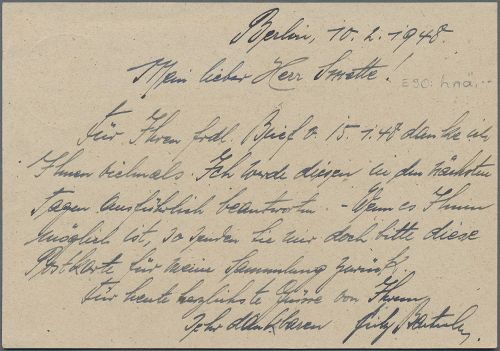 Berlin, 10.2.1948.
Mein lieber Herr
Für Ihren frdl. Brief v. 15.1.48 danke ich
Ihnen vielmals. Ich werde diesen in den nächsten
Tagen ausführlich beantworten. - Wenn es Ihnen
möglich ist, so senden Sie mir doch bitte diese
Postkarte für meine Sammlung zurück.
Für heute herzlichste Grüsse von Ihrem
sehr dankbaren Fritz